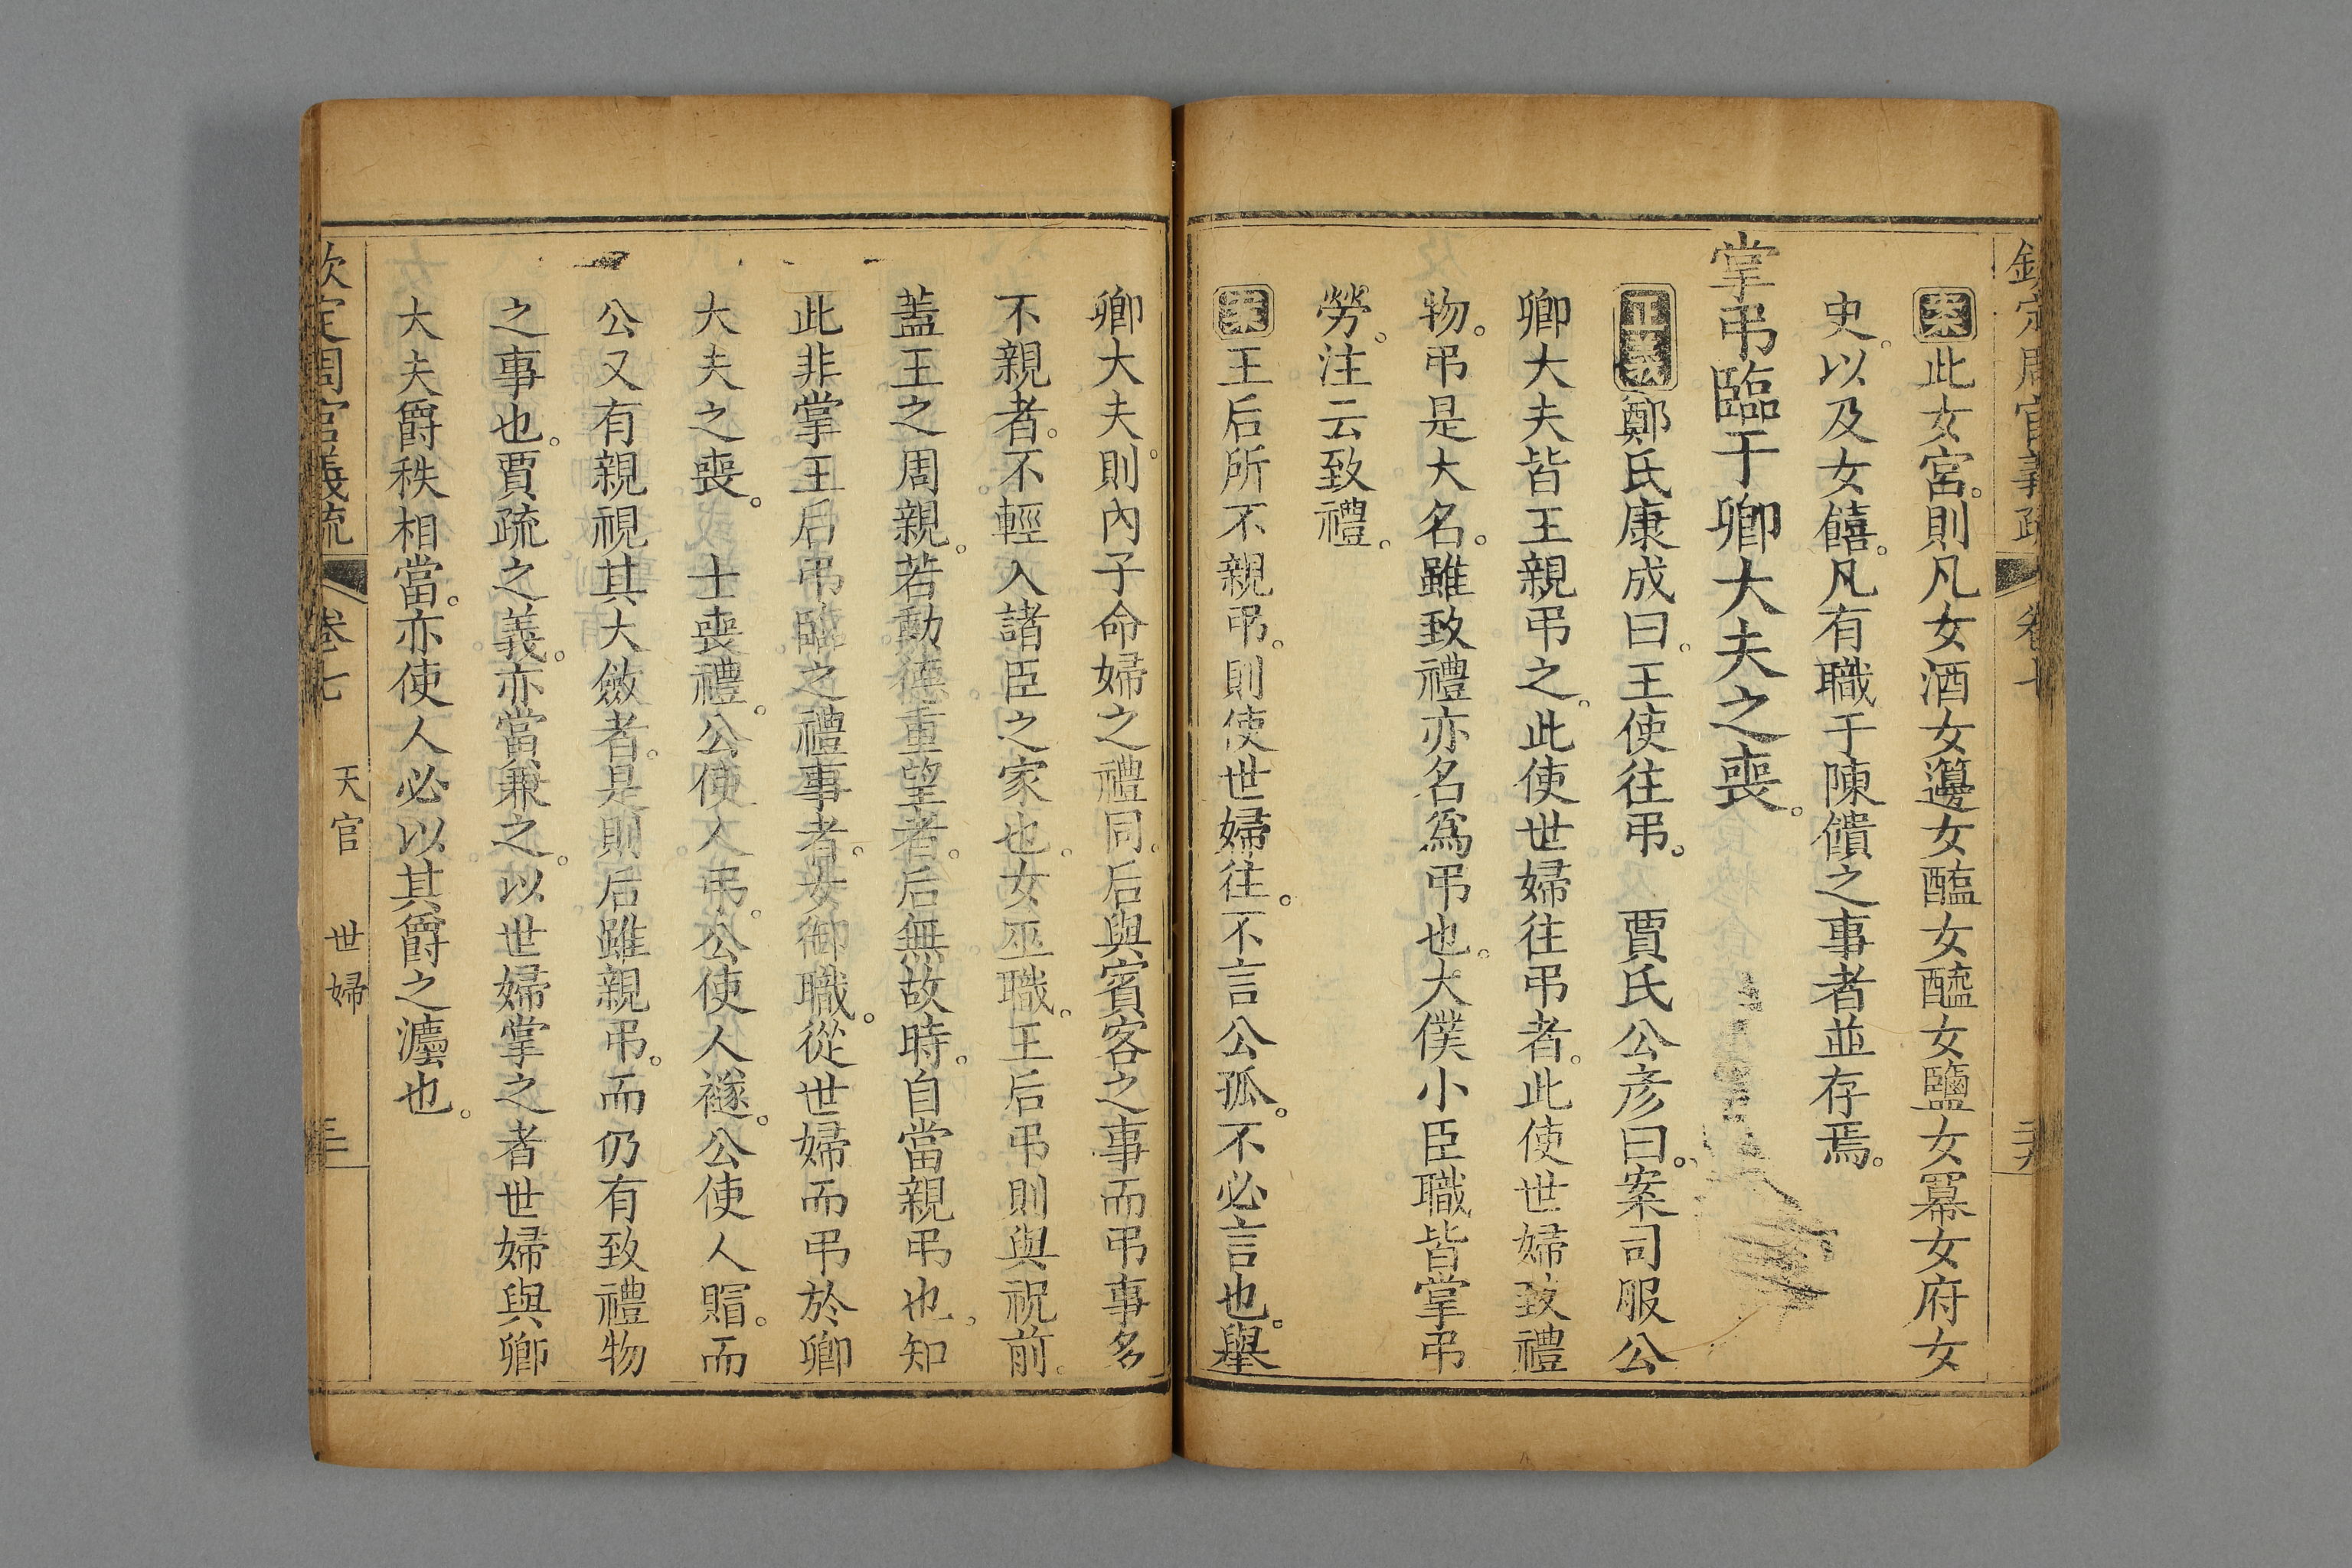 欽定周官義疏 卷七
案此女宮。則凡女酒女籩女醢女醯女鹽女冪女府女
史。以及女饎。凡有職于陳饋之事者並存焉。
掌弔臨于卿大夫之喪。
正義鄭氏康成曰。王使往弔。 賈氏公彥曰。案司服公
卿大夫皆王親弔之。此使世婦往弔者。此使世婦致禮
物。弔是大名。雖致禮亦名爲弔也。大僕小臣職皆掌弔
勞。注云致禮。
案王后所不親弔。則使世婦往。不言公孤。不必言也。舉
卿大夫。則內子命婦之禮同。后與賓客之事而弔事多
不親者。不輕入諸臣之家也。女巫職。王后弔則與祝前。
蓋王之周親。若勳德重望者。后無故時。自當親弔也。知
此非掌王后弔臨之禮事者。女御職。從世婦而弔於卿
大夫之喪。 士喪禮。公使人弔。公使人襚。公使人賵。而
公又有親視其大斂者。是則后雖親弔。而仍有致禮物
之事也。賈疏之義。亦當兼之。以世婦掌之者世婦與卿
大夫爵秩相當。亦使人必以其爵之灋也。
欽定周官義疏 卷七 天官 世婦